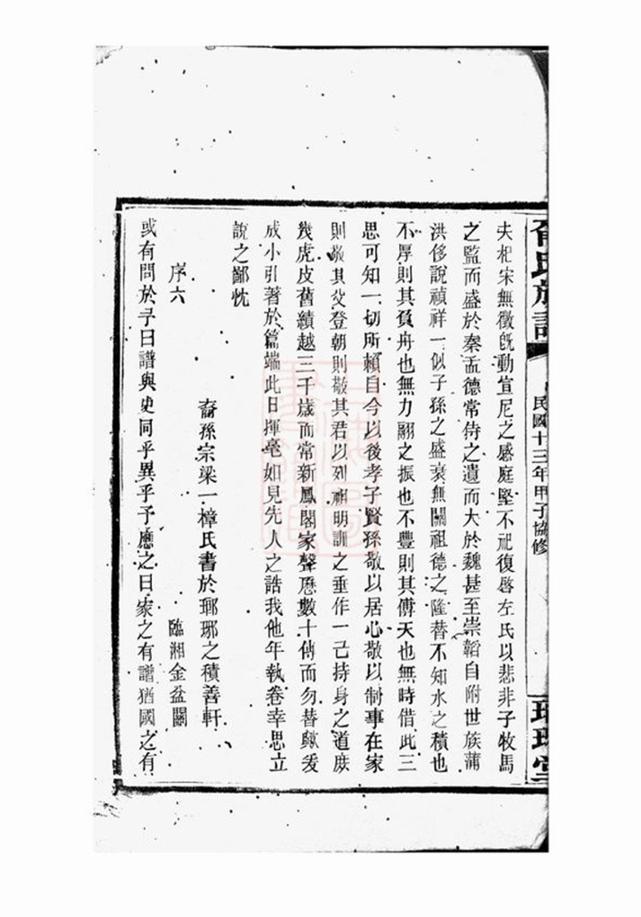 氏族譜
民國十三年甲子協修
夫杞宋無徵旣動宣尼之感庭堅不祀復啓左氏以悲非子牧馬
之監而盛於秦孟德常侍之遺而大於魏甚至崇韜自附世族蒲
洪侈說禎祥一似子孫之盛衰無關祖德之隆替不知水之積也
不厚則其負舟也無力翮之振也不豐則其傳天也無時借此三
思可知一切所賴自今以後孝子賢孫敬以居心敬以制事在家
則敬其父登朝則敬其君以列祖明訓之垂作一己持身之道庶
幾虎皮舊績越三千歲而常新鳳閣家聲歷數十傳而勿替歟爰
成小引著於篇端此日揮毫如見先人之誥我他年執卷幸思立
說之鄙忱
裔孫宗梁一樟氏書於瑯琊之積善軒
序六
臨湘金盆關
或有問於予曰譜與史同乎異乎予應之曰家之有譜猶國之有